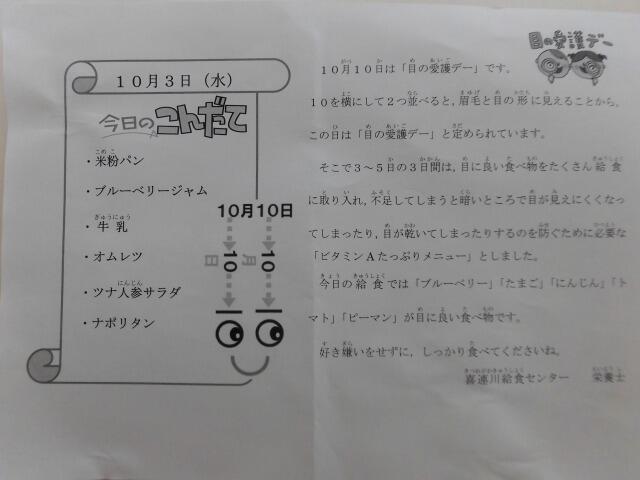 10月3日（水）
今日のこんだて
・米粉パン
・ブルーベリージャム
・牛乳
・オムレツ
・ツナ人参サラダ
・ナポリタン
10月10日
10月
10日
目の愛護デー
10月10日は「目の愛護デー」です。
10を横にして2つ並べると，眉毛と目の形に見えることから，
この日は「目の愛護デー」と定められています。
そこで3～5日の3日間は，目に良い食べ物をたくさん給食
に取り入れ，不足してしまうと暗いところで目が見えにくくなっ
てしまったり，目が乾いてしまったりするのを防ぐために必要な
「ビタミンAたっぷりメニュー」としました。
今日の給食では「ブルーベリー」「たまご」「にんじん」「ト
マト」「ピーマン」が目に良い食べ物です。
好き嫌いをせずに，しっかり食べてくださいね。
喜連川給食センター　栄養士